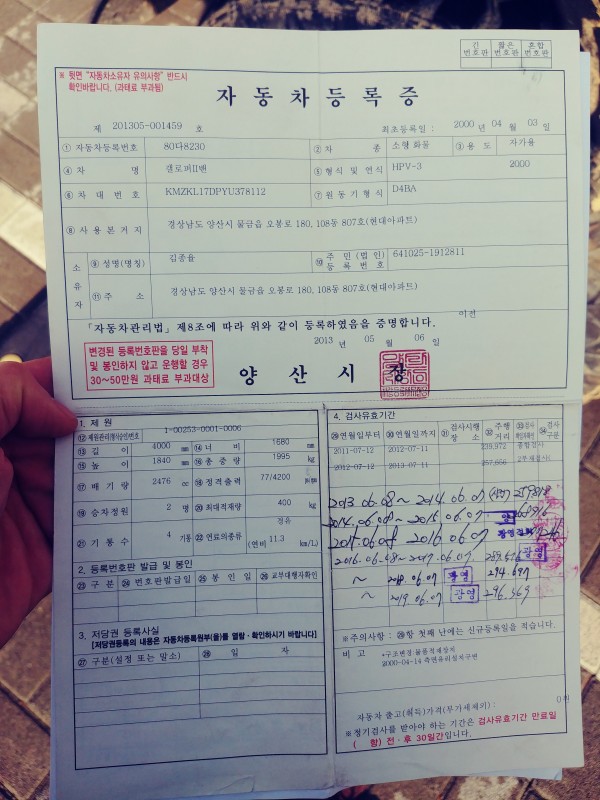 긴 번호판 짧은 번호판 혼합 번호판
※ 뒷면 "자동차소유자 유의사항" 반드시
확인바랍니다. (과태료 부과됨)
자 동 차 등 록 증
제 201305-001459 호 최초등록일 : 2000 년 04 월 03 일
① 자동차등록번호 80다8230 ② 차 종 소형 화물 ③ 용 도 자가용
④ 차 명 갤로퍼II밴 ⑤ 형식 및 연식 HPV-3 2000
⑥ 차 대 번 호 KMZKL17DPYU378112 ⑦ 원동기형식 D4BA
⑧ 사 용 본 거 지 경상남도 양산시 물금읍 오봉로 180, 108동 807호(현대아파트)
소유자 ⑨ 성명(명칭) 김종율 ⑩ 주 민 (법 인) 등 록 번 호 641025-1912811
⑪ 주 소 경상남도 양산시 물금읍 오봉로 180, 108동 807호(현대아파트)
이전
「자동차관리법」 제8조에 따라 위와 같이 등록하였음을 증명합니다.
2013 년 05 월 06 일
변경된 등록번호판을 당일 부착
및 봉인하지 않고 운행할 경우
30～50만원 과태료 부과대상
양 산 시 장
1. 제 원
⑫ 제원관리(형식승인)번호 1-00253-0001-0006
⑬ 길 이 4000 mm ⑭ 너 비 1680 mm
⑮ 높 이 1840 mm ⑯ 총 중 량 1995 kg
⑰ 배 기 량 2476 cc ⑱ 정격출력 77/4200
⑲ 승차정원 2 명 ⑳ 최대적재량 400 kg
㉑ 기 통 수 4 기통 ㉒ 연료의종류 경유 (연비) 11.3 km/L)
2. 등록번호판 발급 및 봉인
㉓ 구 분 ㉔ 번호판발급일 ㉕ 봉 인 일 ㉖ 교부대행자확인
3. 저당권 등록사실
[저당권등록의 내용은 자동차등록원부(을)를 열람·확인하시기 바랍니다]
㉗ 구분(설정 또는 말소) ㉘ 일 자
4. 검사유효기간
㉙ 연월일부터 ㉚ 연월일까지 ㉛ 검사시행 장 소 ㉜ 주행 거리 ㉝ 검사 ㉞ 검사 구분
2011-07-12 2012-07-11 종합검사
2012-07-12 2013-07-11
2013.06.08 ~ 2014.06.07
2014.06.08 ~ 2015.06.07
2015.06.08 2016.06.07
2016.06.08 ~ 2017.06.07 광영
~ 2018.06.07 광영 294.697
~ 2019.06.07 광영 296.569
※주의사항 : ㉙항 첫째 난에는 신규등록일을 적습니다.
비 고 *구조변경:물품적재장치
2000-04-14
자동차 출고(취득)가격(부가세제외) : 0원
※정기검사를 받아야 하는 기간은 검사유효기간 만료일
( 향) 전·후 30일간입니다.